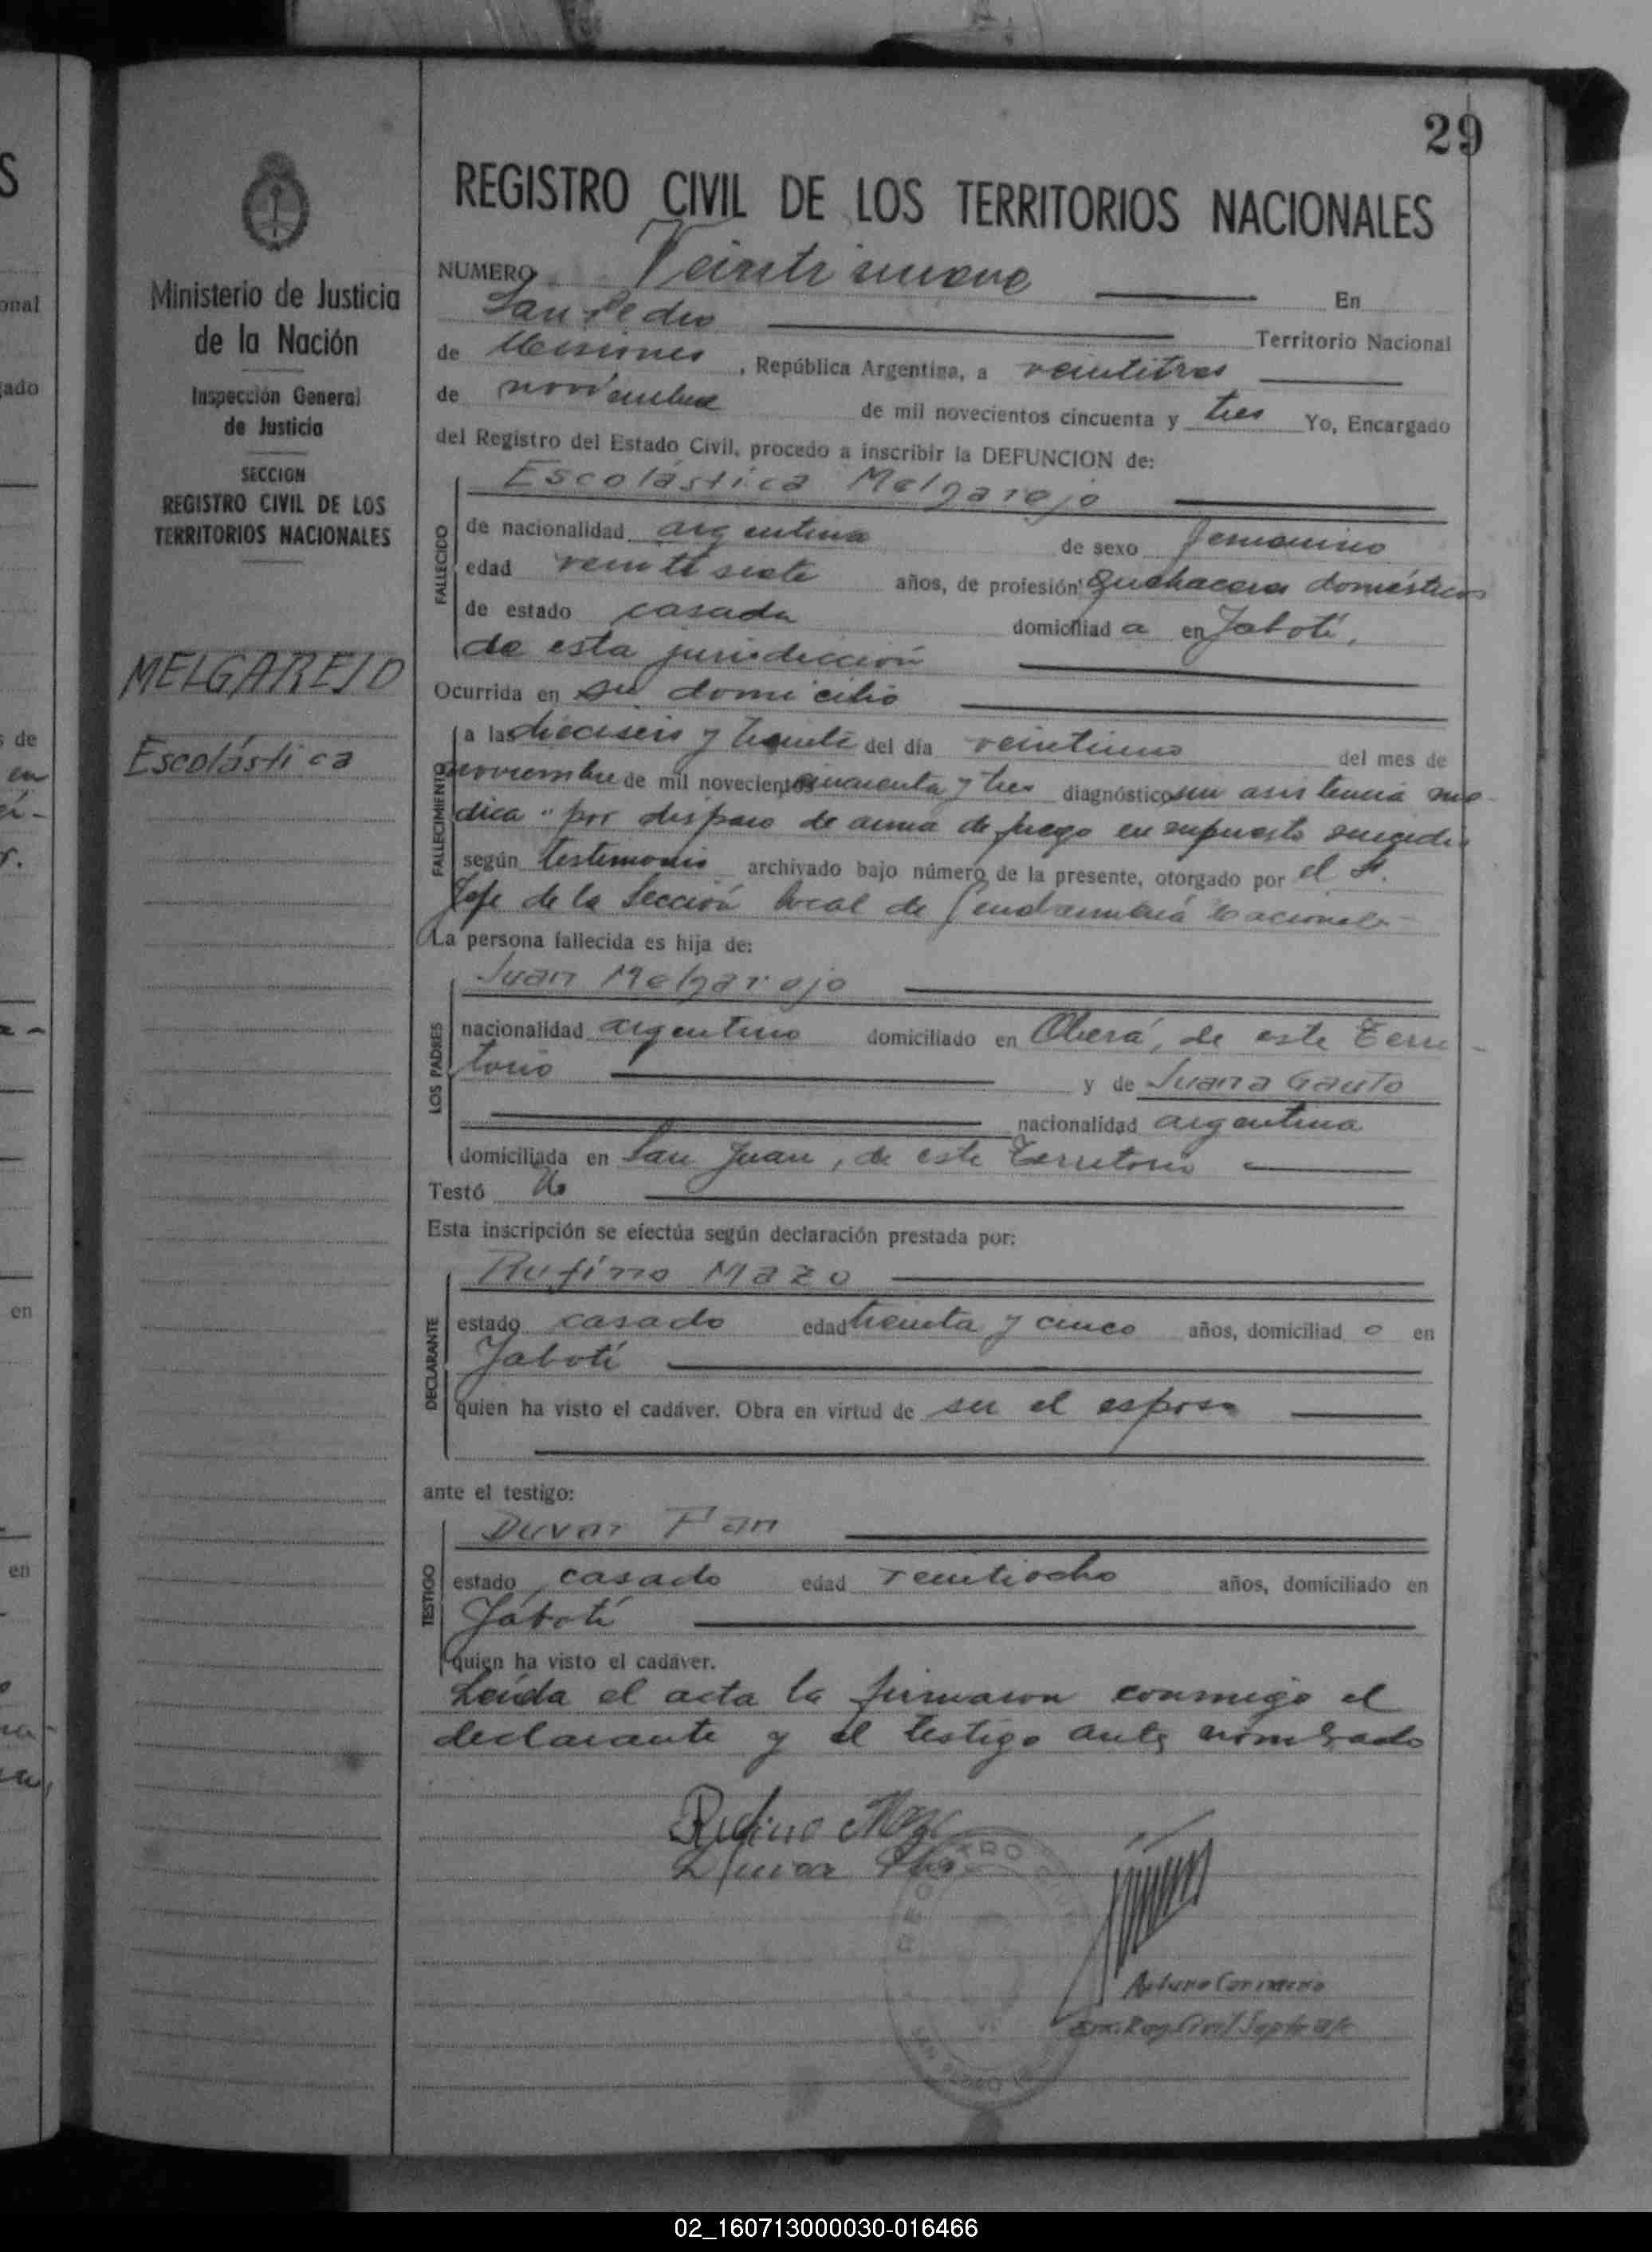 29
REGISTRO CIVIL DE LOS TERRITORIOS NACIONALES
Ministerio de Justicia
de la Nación
Inspección General
de Justicia
SECCION
REGISTRO CIVIL DE LOS
TERRITORIOS NACIONALES
MELGAREJO
Escolástica
NUMERO Veinti nueve En
San Pedro Territorio Nacional
de Misiones, República Argentina, a veintitres
de noviembre de mil novecientos cincuenta y tres Yo, Encargado
del Registro del Estado Civil, procedo a inscribir la DEFUNCION de:
Escolástica Melgarejo
FALLECIDO
de nacionalidad argentina de sexo femenino
edad veinti siete años, de profesión quehaceres domésticos
de estado casada domiciliad a en Jabotí,
de esta jurisdicción
Ocurrida en su domicilio
FALLECIMIENTO
a las dieciseis y treinta del día veintiuno del mes de
noviembre de mil novecientos cincuenta y tres diagnóstico sin asistencia me-
dica "por disparo de arma de fuego en supuesto
según testimonio archivado bajo número de la presente, otorgado por el Sr.
Jefe de la Sección local de Gendarmería Nacional
La persona fallecida es hija de:
LOS PADRES
Juan Melgarejo
nacionalidad argentino domiciliado en Oberá, de este Terri-
torio y de Juana Gauto
nacionalidad argentina
domiciliada en San Juan, de este Territorio
Testó No
Esta inscripción se efectúa según declaración prestada por:
DECLARANTE
Rufino Mazo
estado casado edad treinta y cinco años, domiciliad o en
Jabotí
quien ha visto el cadáver. Obra en virtud de ser el esposo
ante el testigo:
TESTIGO
Duvar Fan
estado casado edad veintiocho años, domiciliado en
Jabotí
quien ha visto el cadáver.
Leída el acta la firmaron conmigo el
declarante y el testigo ante nombrado
Rufino
Arturo
02_160713000030-016466